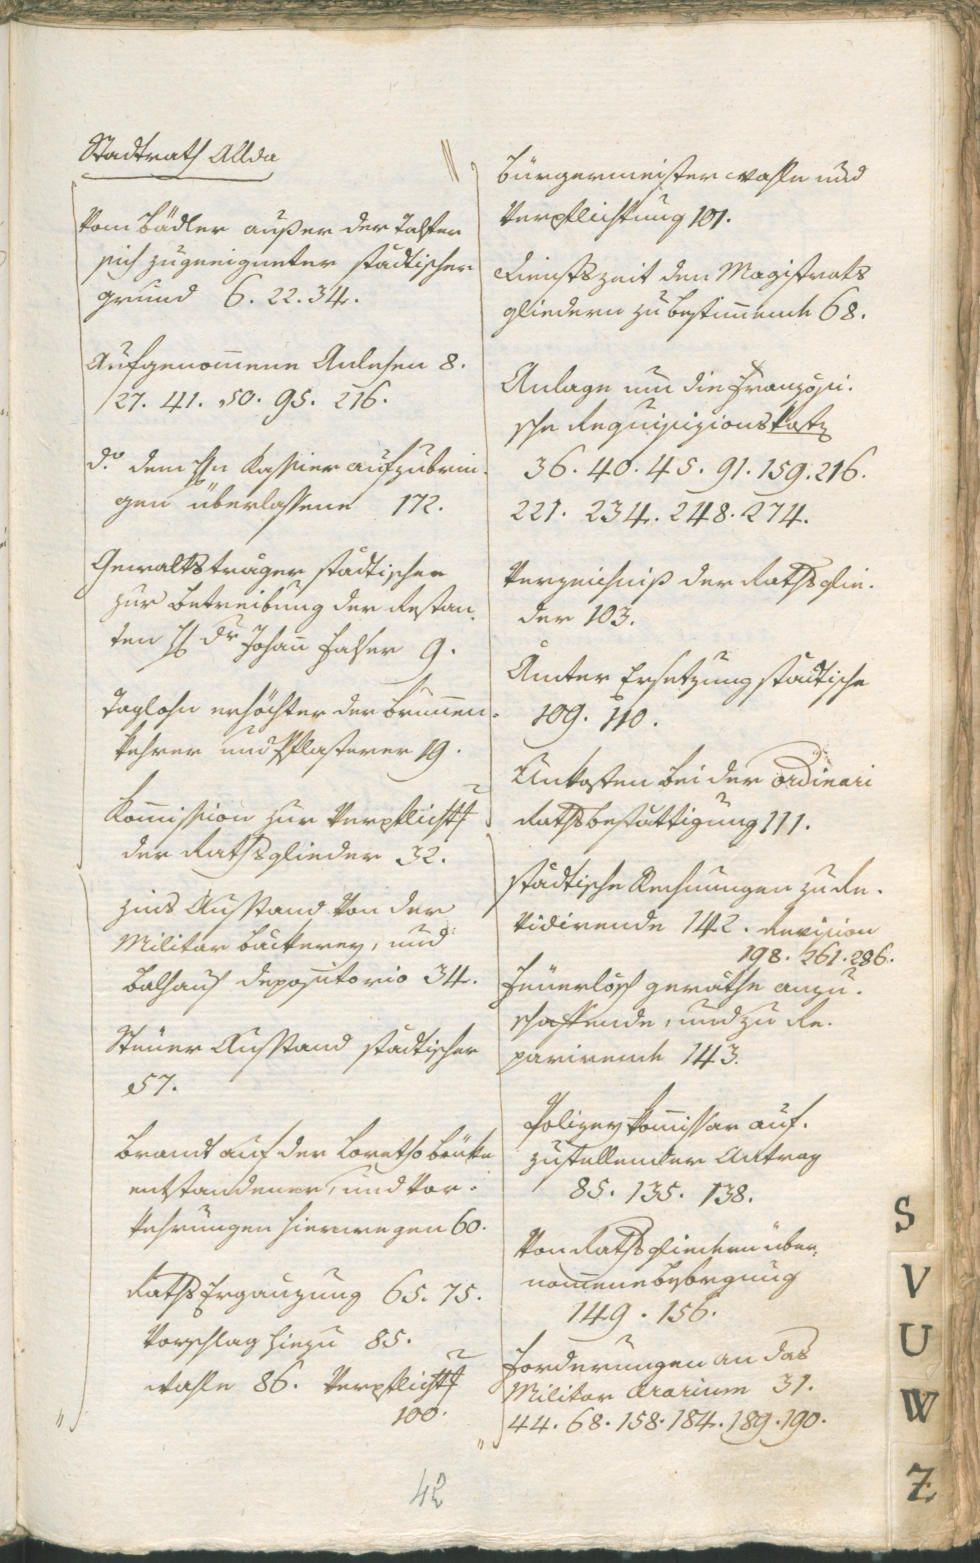 Stadtrath Allda
Vom Bädler außer der Taffer
sich zugeeigneter städtischer
grund 6. 22. 34.
Aufgenom̄ene Anlehen 8.
27. 41. 50. 95. 216.
d.o dem Hn Kassier aufzubrin-
gen überlassene 172.
Gewaltsträger städtischer
zur Betreibung der Restan-
ten H Dr Johañ 9.
Taglohn erhöhter der Brunnen-
kehrer und Pflasterer 19.
Kom̄ission zur Verpflicht
der Rathsglieder 32.
Zins Ausstand von der
Militar Bäckerey, und
Balhaus Depositorio 34.
Steuer Ausstand städtischer
57.
Brand auf der Loreto
entstandener, und Vor-
kehrungen hierwegen 60.
Raths Ergänzung 65. 75.
Vorschlag hiezu 85.
Wahle 86. Verpflicht
100.
Bürgermeister Wahle und
Verpflichtung 101.
Dienstszeit den Magistrats
gliedern zu bestim̄ende 68.
Anlage um die Französi-
sche Requisizionskösten
36. 40. 45. 91. 159. 216.
221. 234. 248. 274.
Verzeichniß der Rathsglie-
der 103.
Ämter Ersetzung städtische
109. 110.
Unkosten bei der ordinari
Rathsbestättigung 111.
städtische Rechnungen zu Re-
vidirende 142. Revision
198. 261. 286.
Feuerlösch geräthe anzu-
schaffende, und zu Re-
parirende 143.
Polizey Kom̄issar auf-
zustellender Antrag
85. 135. 138.
Von Rathsgliedern über-
nom̄ene Besorgung
149. 156.
Forderungen an das
Militar Ärarium 31.
44. 68. 158. 184. 189. 190.
42
S
V
U
W
Z